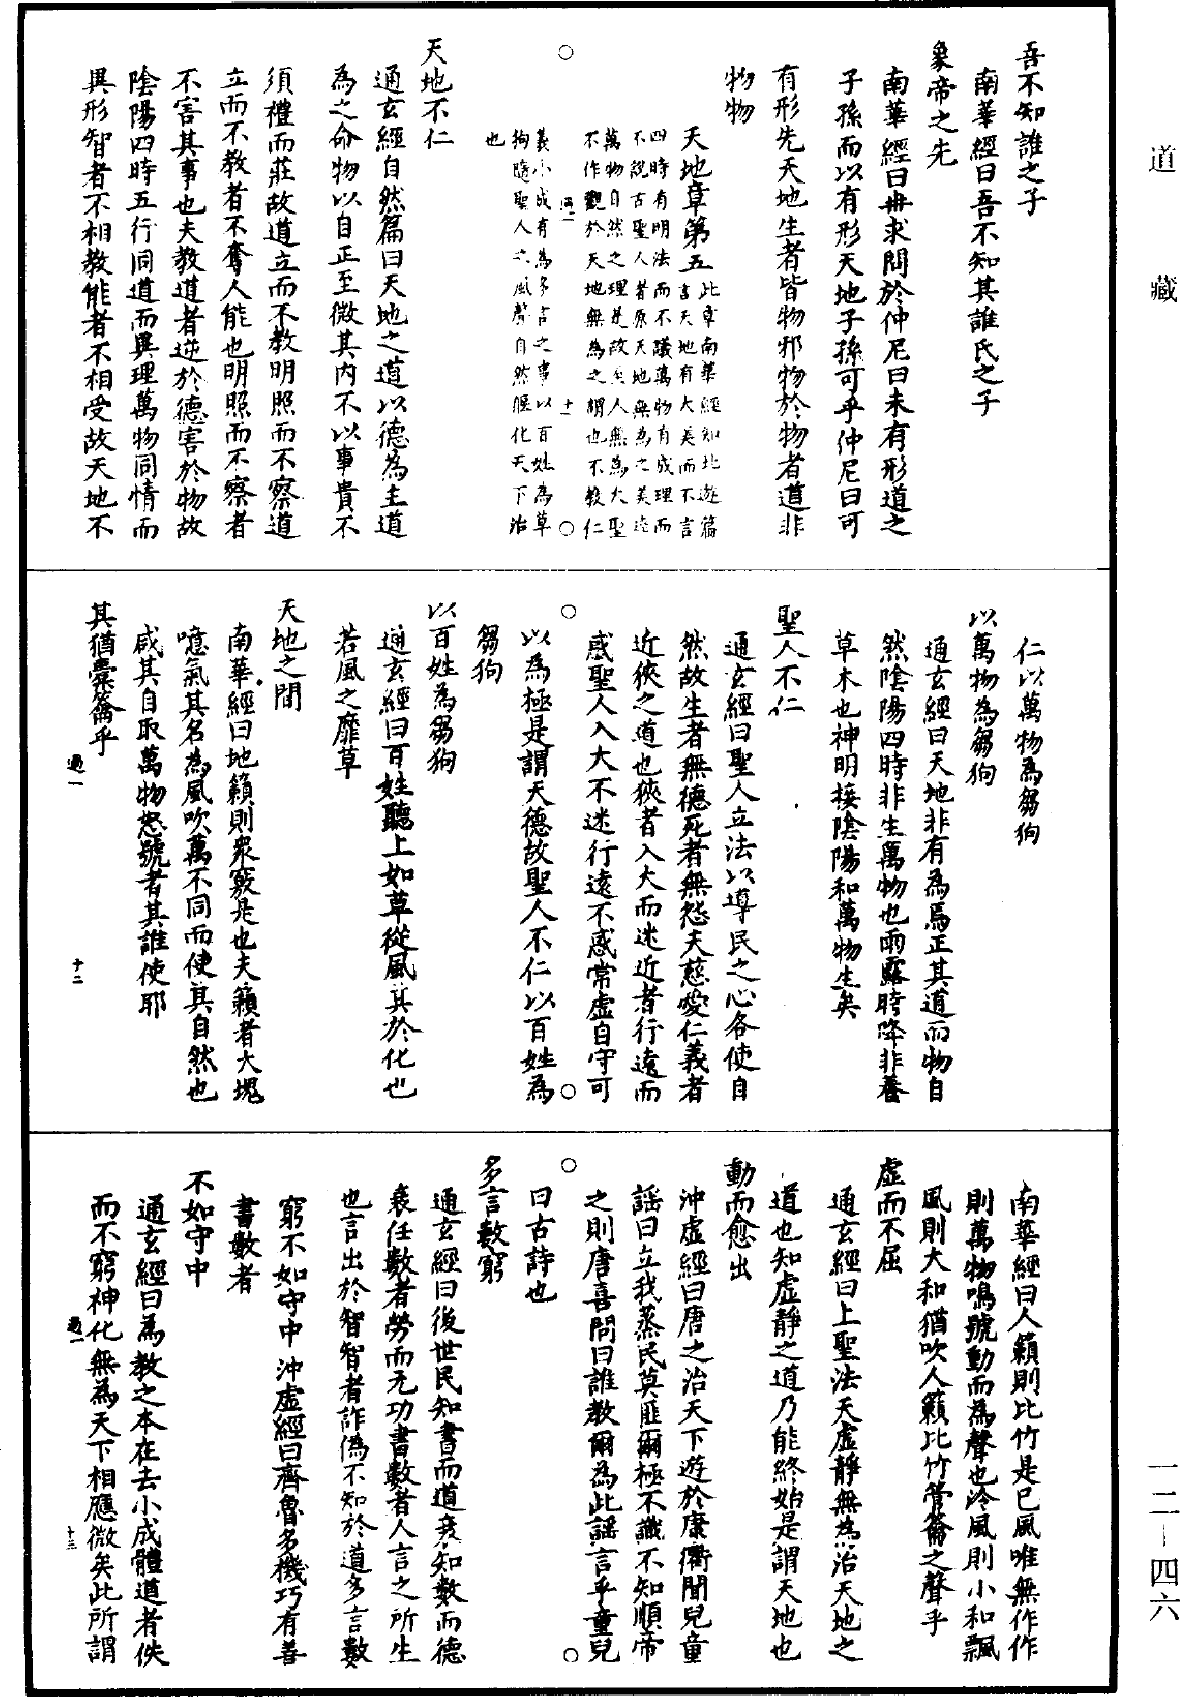 吾不知誰之子
南華經曰吾不知其誰氏之子
象帝之先
南華經曰冉求問於仲尼曰未有形道之
子孫而以有形天地子孫可乎仲尼曰可
有形先天地生者皆物邪物於物者道非
物物
天地章第五此章南華經知北遊篇
言天地有大美而不言
四時有明法而不議萬物有成理而
不說古聖人者原天地無為之美達
萬物自然之理是故至人無為大聖
不作觀於天地無為之謂也不較仁
義小成有為多言之事以百姓為草
狗隨聖人之風聲自然偃化天下治
也
天地不仁
通玄經自然篇曰天地之道以德為主道
為之命物以自正至微其內不以事貴不
須禮而莊故道立而不教明照而不察道
立而不教者不奪人能也明照而不察者
不害其事也夫教道者逆於德害於物故
陰陽四時五行同道而異理萬物同情而
異形智者不相教能者不相受故天地不
仁以萬物為芻狗
以萬物為芻狗
通玄經曰天地非有為焉正其道而物自
然陰陽四時非生萬物也雨露時降非養
草木也神明接陰陽和萬物生矣
聖人不仁
通玄經曰聖人立法以導民之心各使自
然故生者無德死者無怨夫慈愛仁義者
近狹之道也狹者入大而迷近者行遠而
惑聖人入大不迷行遠不惑常虛自守可
以為極是謂天德故聖人不仁以百姓為
芻狗
以百姓為芻狗
通玄經曰百姓聽上如草從風其於化也
若風之靡草
天地之間
南華經曰地籟則眾竅是也夫籟者大塊
噫氣其名為風吹萬不同而使其自然也
咸其自取萬物怒號者其誰使耶
其猶橐籥乎
過一
十二
南華經曰人籟則比竹是已風唯無作作
則萬物鳴號動而為聲也泠風則小和飄
風則大和猶吹人籟比竹管籥之聲乎
虛而不屈
通玄經曰上聖法天虛靜無為治天地之
道也知虛靜之道乃能終始是謂天地也
動而愈出
沖虛經曰唐之治天下遊於康衢聞兒童
謠曰立我蒸民莫匪爾極不識不知順帝
之則唐喜問曰誰教爾為此謠言乎童兒
曰古詩也
多言數窮
通玄經曰後世民知書而道衰知數而德
衰任數者勞而无功書數者人言之所生
也言出於智智者詐偽不知於道多言數
窮不如守中沖虛經曰齊魯多機巧有善
書數者
不如守中
通玄經曰為教之本在去小成體道者佚
而不窮神化無為天下相應微矣此所謂
過一
十三
道藏
一二—四六